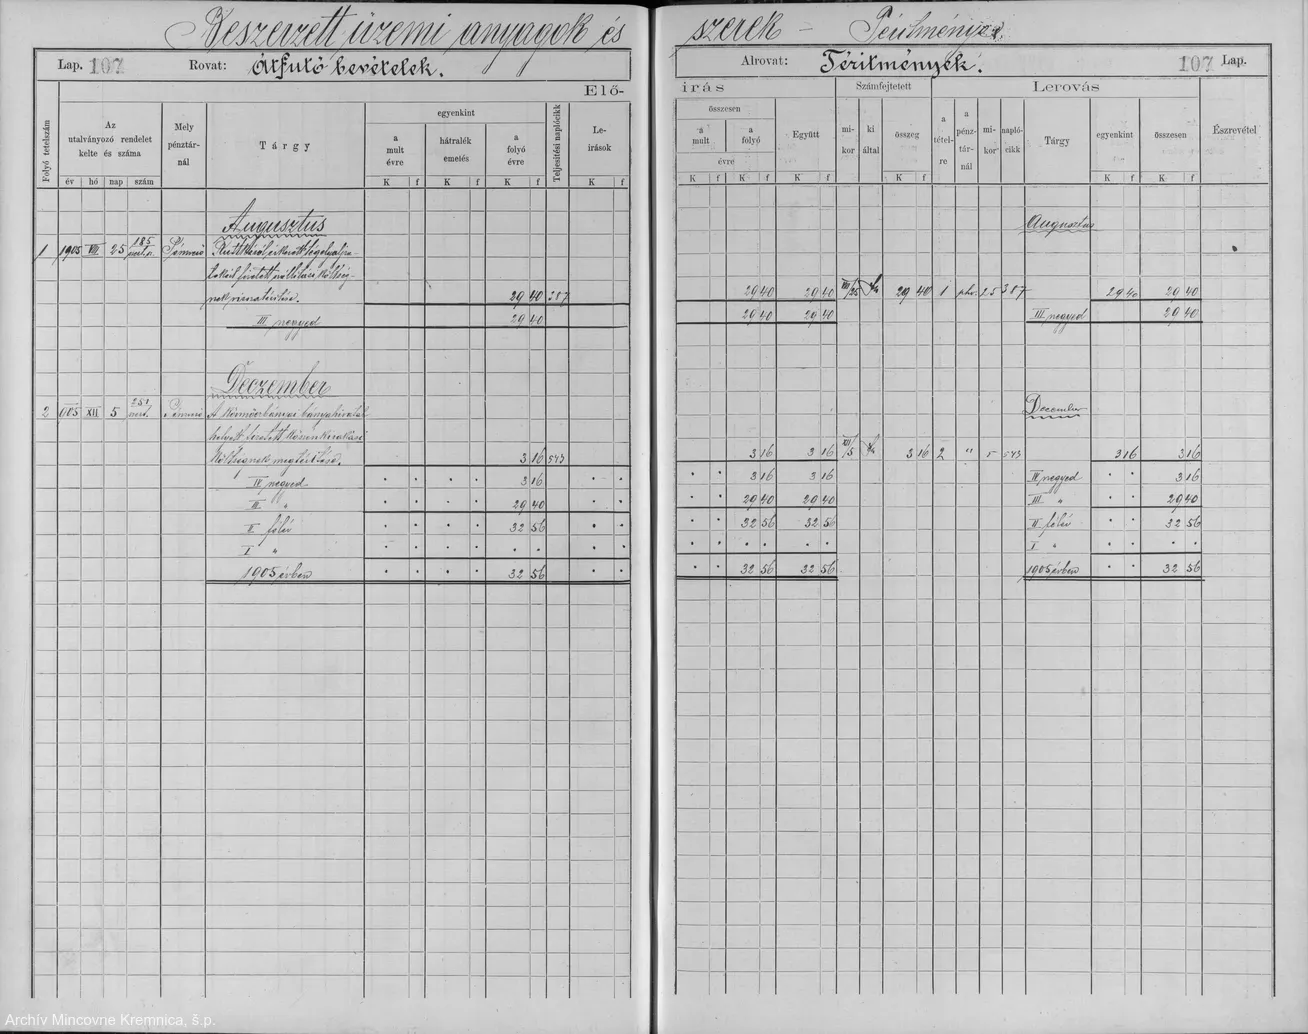 Beszerzett üzemi anyagok és szerek –
Lap. 107 Rovat: Átfutó bevételek. Alrovat: Térítmények. 107 Lap.
Elő- irás Számfejtetett Lerovás
Folyó tételszám
Az utalványozó rendelet kelte és száma
év hó nap szám
Mely pénztár-nál
Tárgy
egyenkint
a mult évre
hátralék emelés
a folyó évre
Teljesitési naplócikk
Le-irások
K f K f K f K f
összesen
a mult
a folyó
évre
Együtt
mi-kor
ki által
összeg
a tétel-re
a pénz-tár-nál
mi-kor
napló-cikk
Tárgy
egyenkint
összesen
Észrevétel
K f K f K f K f K f K f
Augusztus Augusztus
1 1905 VIII 25 185
nek visszatérítése. 29 40 387 29 40 29 40 VIII/25 29 40 1 25 387 29 40 29 40
III negyed 29 40 29 40 29 40 III negyed 29 40
Deczember
2 905 XII 5 251 A körmöczbányai bányahivatal December
helyett
költségnek megtérítése. 3 16 543 3 16 3 16 XII/5 3 16 2 " 5 543 3 16 3 16
IV negyed 3 16 3 16 3 16 IV negyed 3 16
III " 29 40 29 40 29 40 III " 29 40
II félév 32 56 32 56 32 56 II félév 32 56
I " I "
1905 évben 32 56 32 56 32 56 1905 évben 32 56
Archív Mincovne Kremnica, š.p.